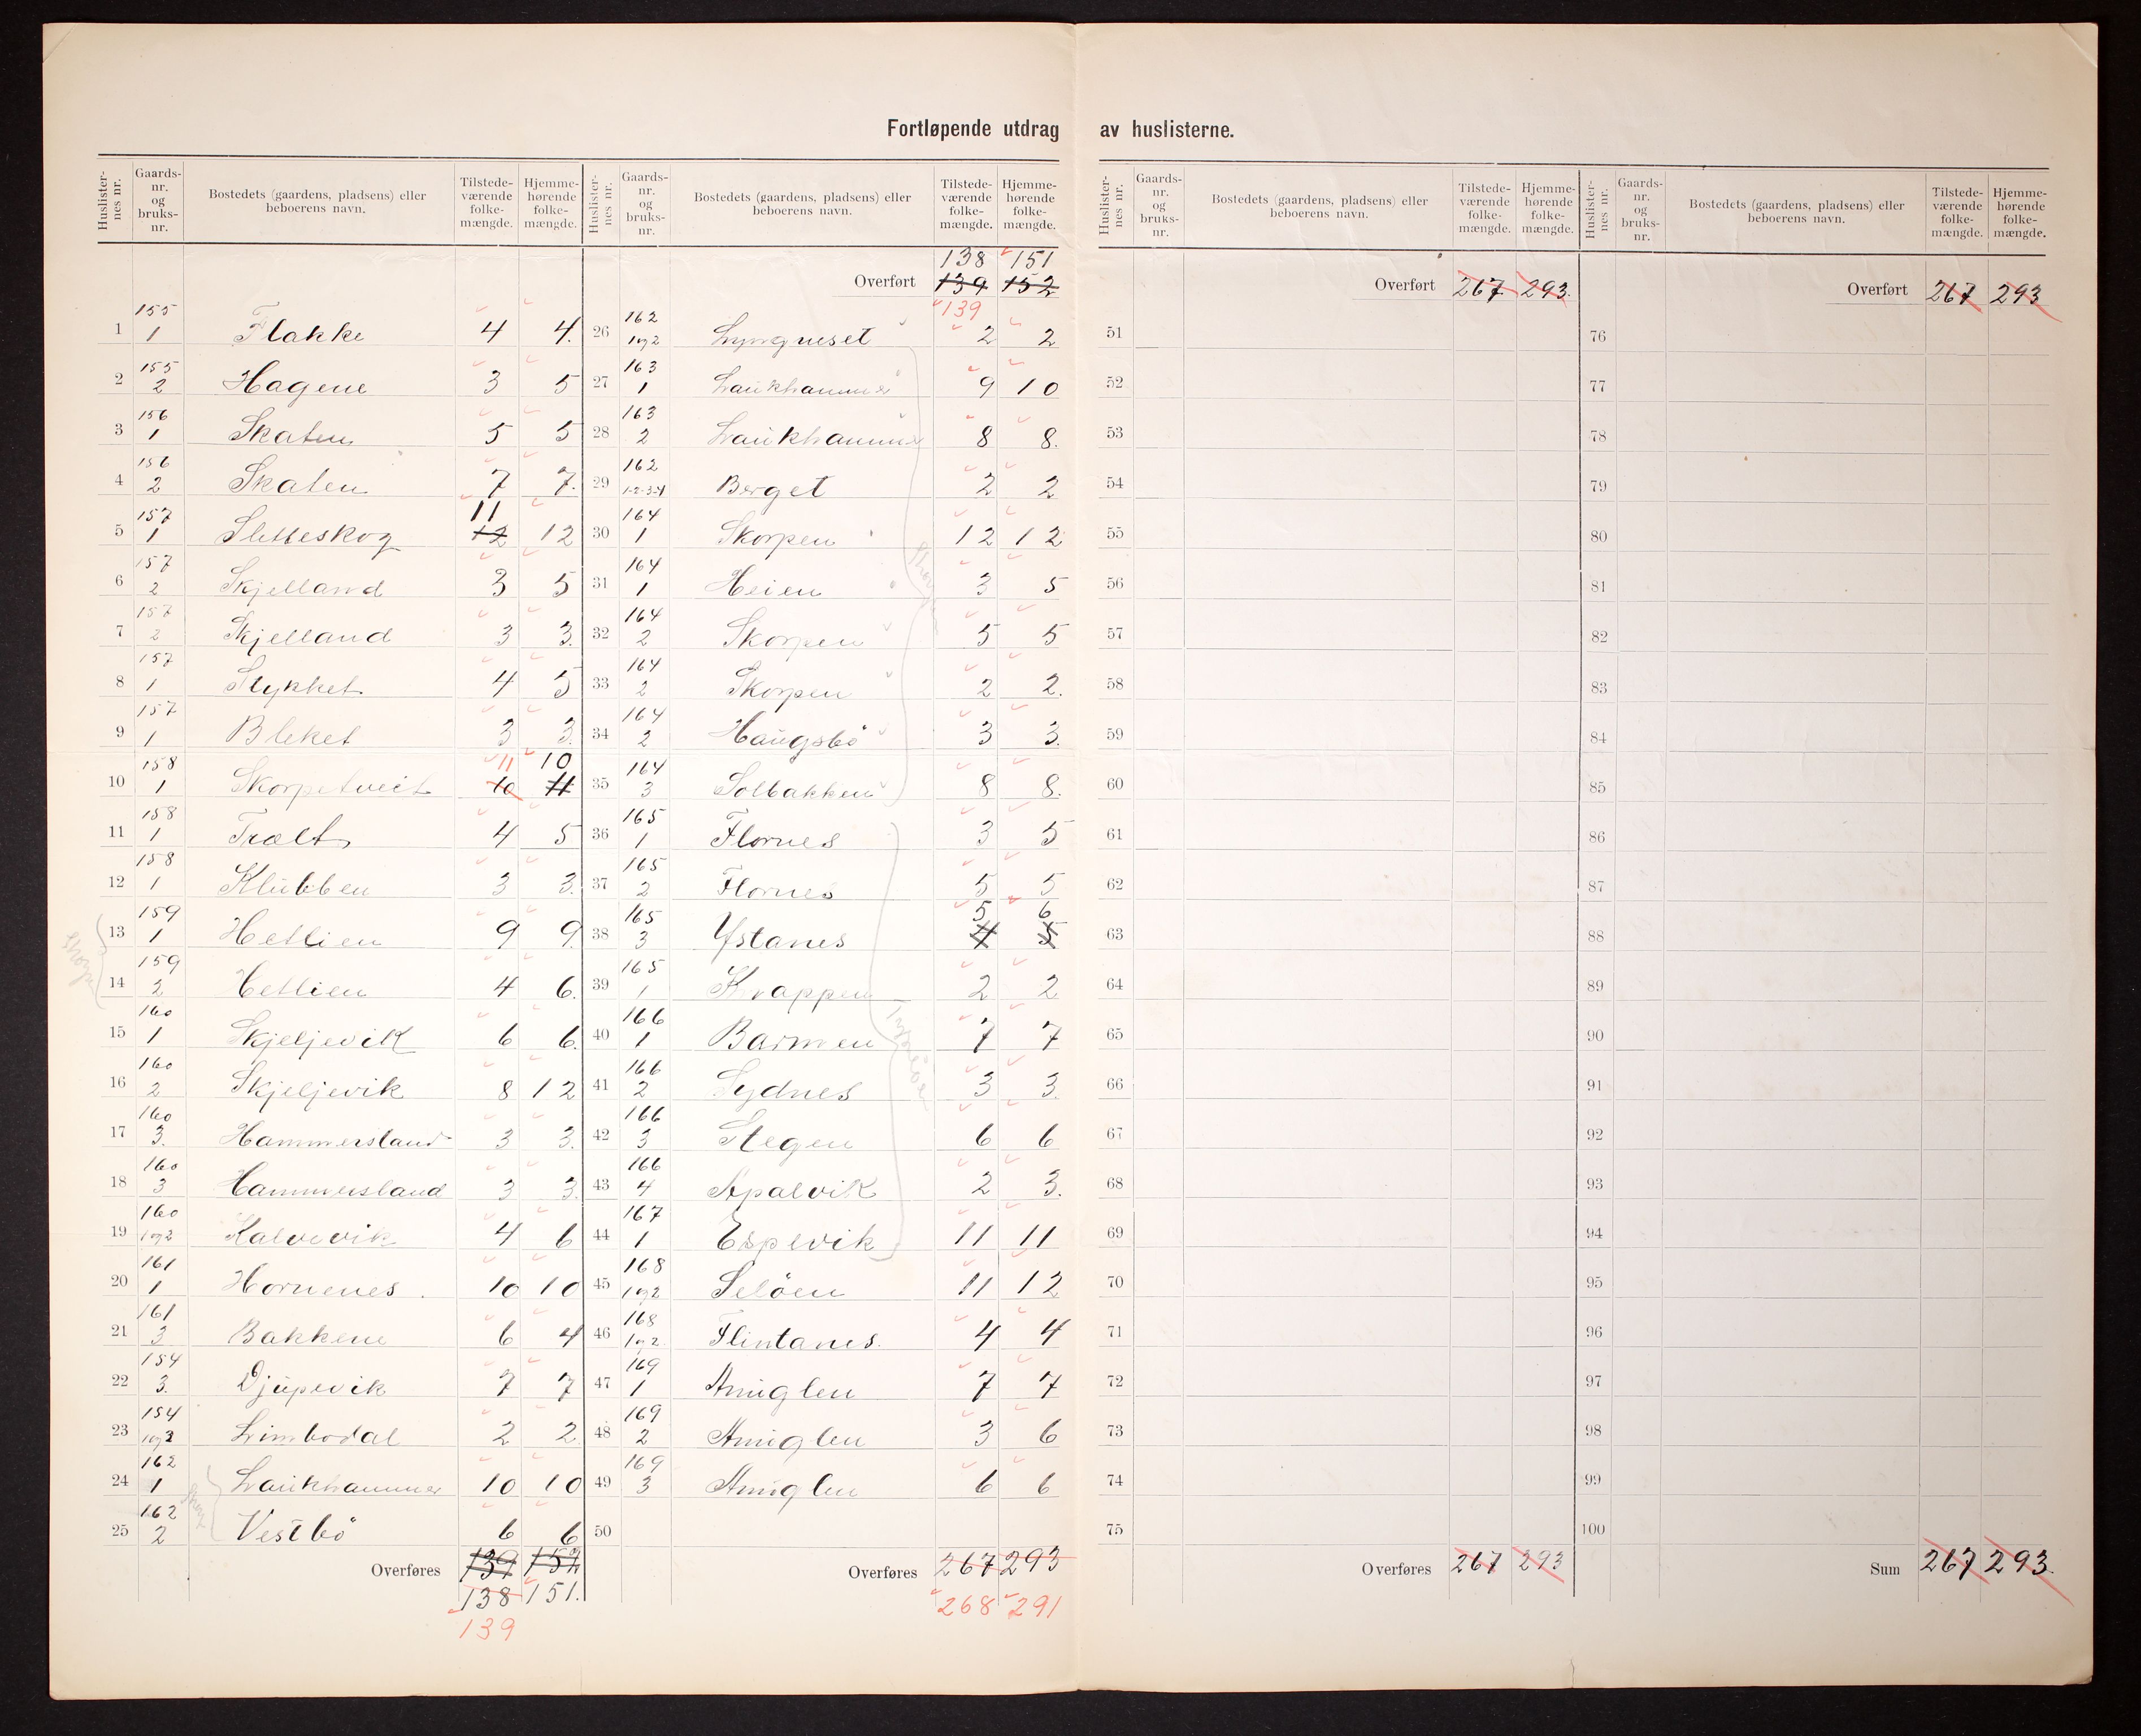 Fortløpende utdrag av huslisterne.
Huslisternes nr. Gaardsnr. og bruksnr. Bostedets (gaardens, pladsens) eller beboerens navn. Tilstedeværende folkemængde. Hjemmehørende folkemængde.
1 155 1 Flakke 4 4.
2 155 2 Hagene 3 5
3 156 1 Skaten 5 5
4 156 2 Skaten 7 7.
5 157 1 Sletteskog 12 11 12
6 157 2 Skjelland 3 5
7 157 2 Skjelland 3 3.
8 157 1 Stykket 4 5
9 157 1 Bleket 3 3.
10 158 1 Skorpetveit 10 11 11 10
11 158 1 Trælt 4 5
12 158 1 Klubben 3 3.
13 159 1 Hetlien 9 9.
14 159 2 Hetlien 4 6.
15 160 1 Skjeljevik 6 6.
16 160 2 Skjeljevik 8 12
17 160 3. Hammersland 3 3.
18 160 3 Hammersland 3 3.
19 160 1og2 Kalvevik 4 6
20 161 1 Hornenes. 10 10
21 161 3 Bakkene 6 4
22 154 3. Djupevik 7 7
23 154 Limbodal 2 2
24 162 1 Laukhammer 10 10
25 162 2 Vestbö 6 6
Overføres 139 152
138 151.
139
Huslisternes nr. Gaardsnr. og bruksnr. Bostedets (gaardens, pladsens) eller beboerens navn. Tilstedeværende folkemængde. Hjemmehørende folkemængde.
138 151
Overført 139 152
139
26 162 1og2 Lyngneset 2 2
27 163 1 Laukhammer 9 10
28 163 2 Laukhammer 8 8.
29 162 1-2-3-4 Berget 2 2
30 164 1 Skorpen 12 12
31 164 1 Heien 3 5
32 164 2 Skorpen 5 5
33 164 2 Skorpen 2 2.
34 164 2 Haugsbö 3 3.
35 164 3 Solbakken 8 8.
36 165 1 Flornes 3 5
37 165 2 Flornes 5 5
38 165 3 Ystanes 4 5 5 6
39 165 1 Knappen 2 2
40 166 1 Barmen 7 7
41 166 2 Sydnes 3 3.
42 166 3 Stegen 6 6
43 166 4 Apalvik 2 3.
44 167 1 Espevik 11 11
45 168 1og2 Selöen 11 12
46 168 1og2. Flintanes. 4 4
47 169 1 Anuglen 7 7
48 169 2 Anuglen 3 6
49 169 3 Anuglen 6 6
50
Overføres 267 293
268 291
Huslisternes nr. Gaardsnr. og bruksnr. Bostedets (gaardens, pladsens) eller beboerens navn. Tilstedeværende folkemængde. Hjemmehørende folkemængde.
Overført 267 293.
51
52
53
54
55
56
57
58
59
60
61
62
63
64
65
66
67
68
69
70
71
72
73
74
75
Overføres 267 293
Huslisternes nr. Gaardsnr. og bruksnr. Bostedets (gaardens, pladsens) eller beboerens navn. Tilstedeværende folkemængde. Hjemmehørende folkemængde.
Overført 267 293
76
77
78
79
80
81
82
83
84
85
86
87
88
89
90
91
92
93
94
95
96
97
98
99
100
Sum 267 293.